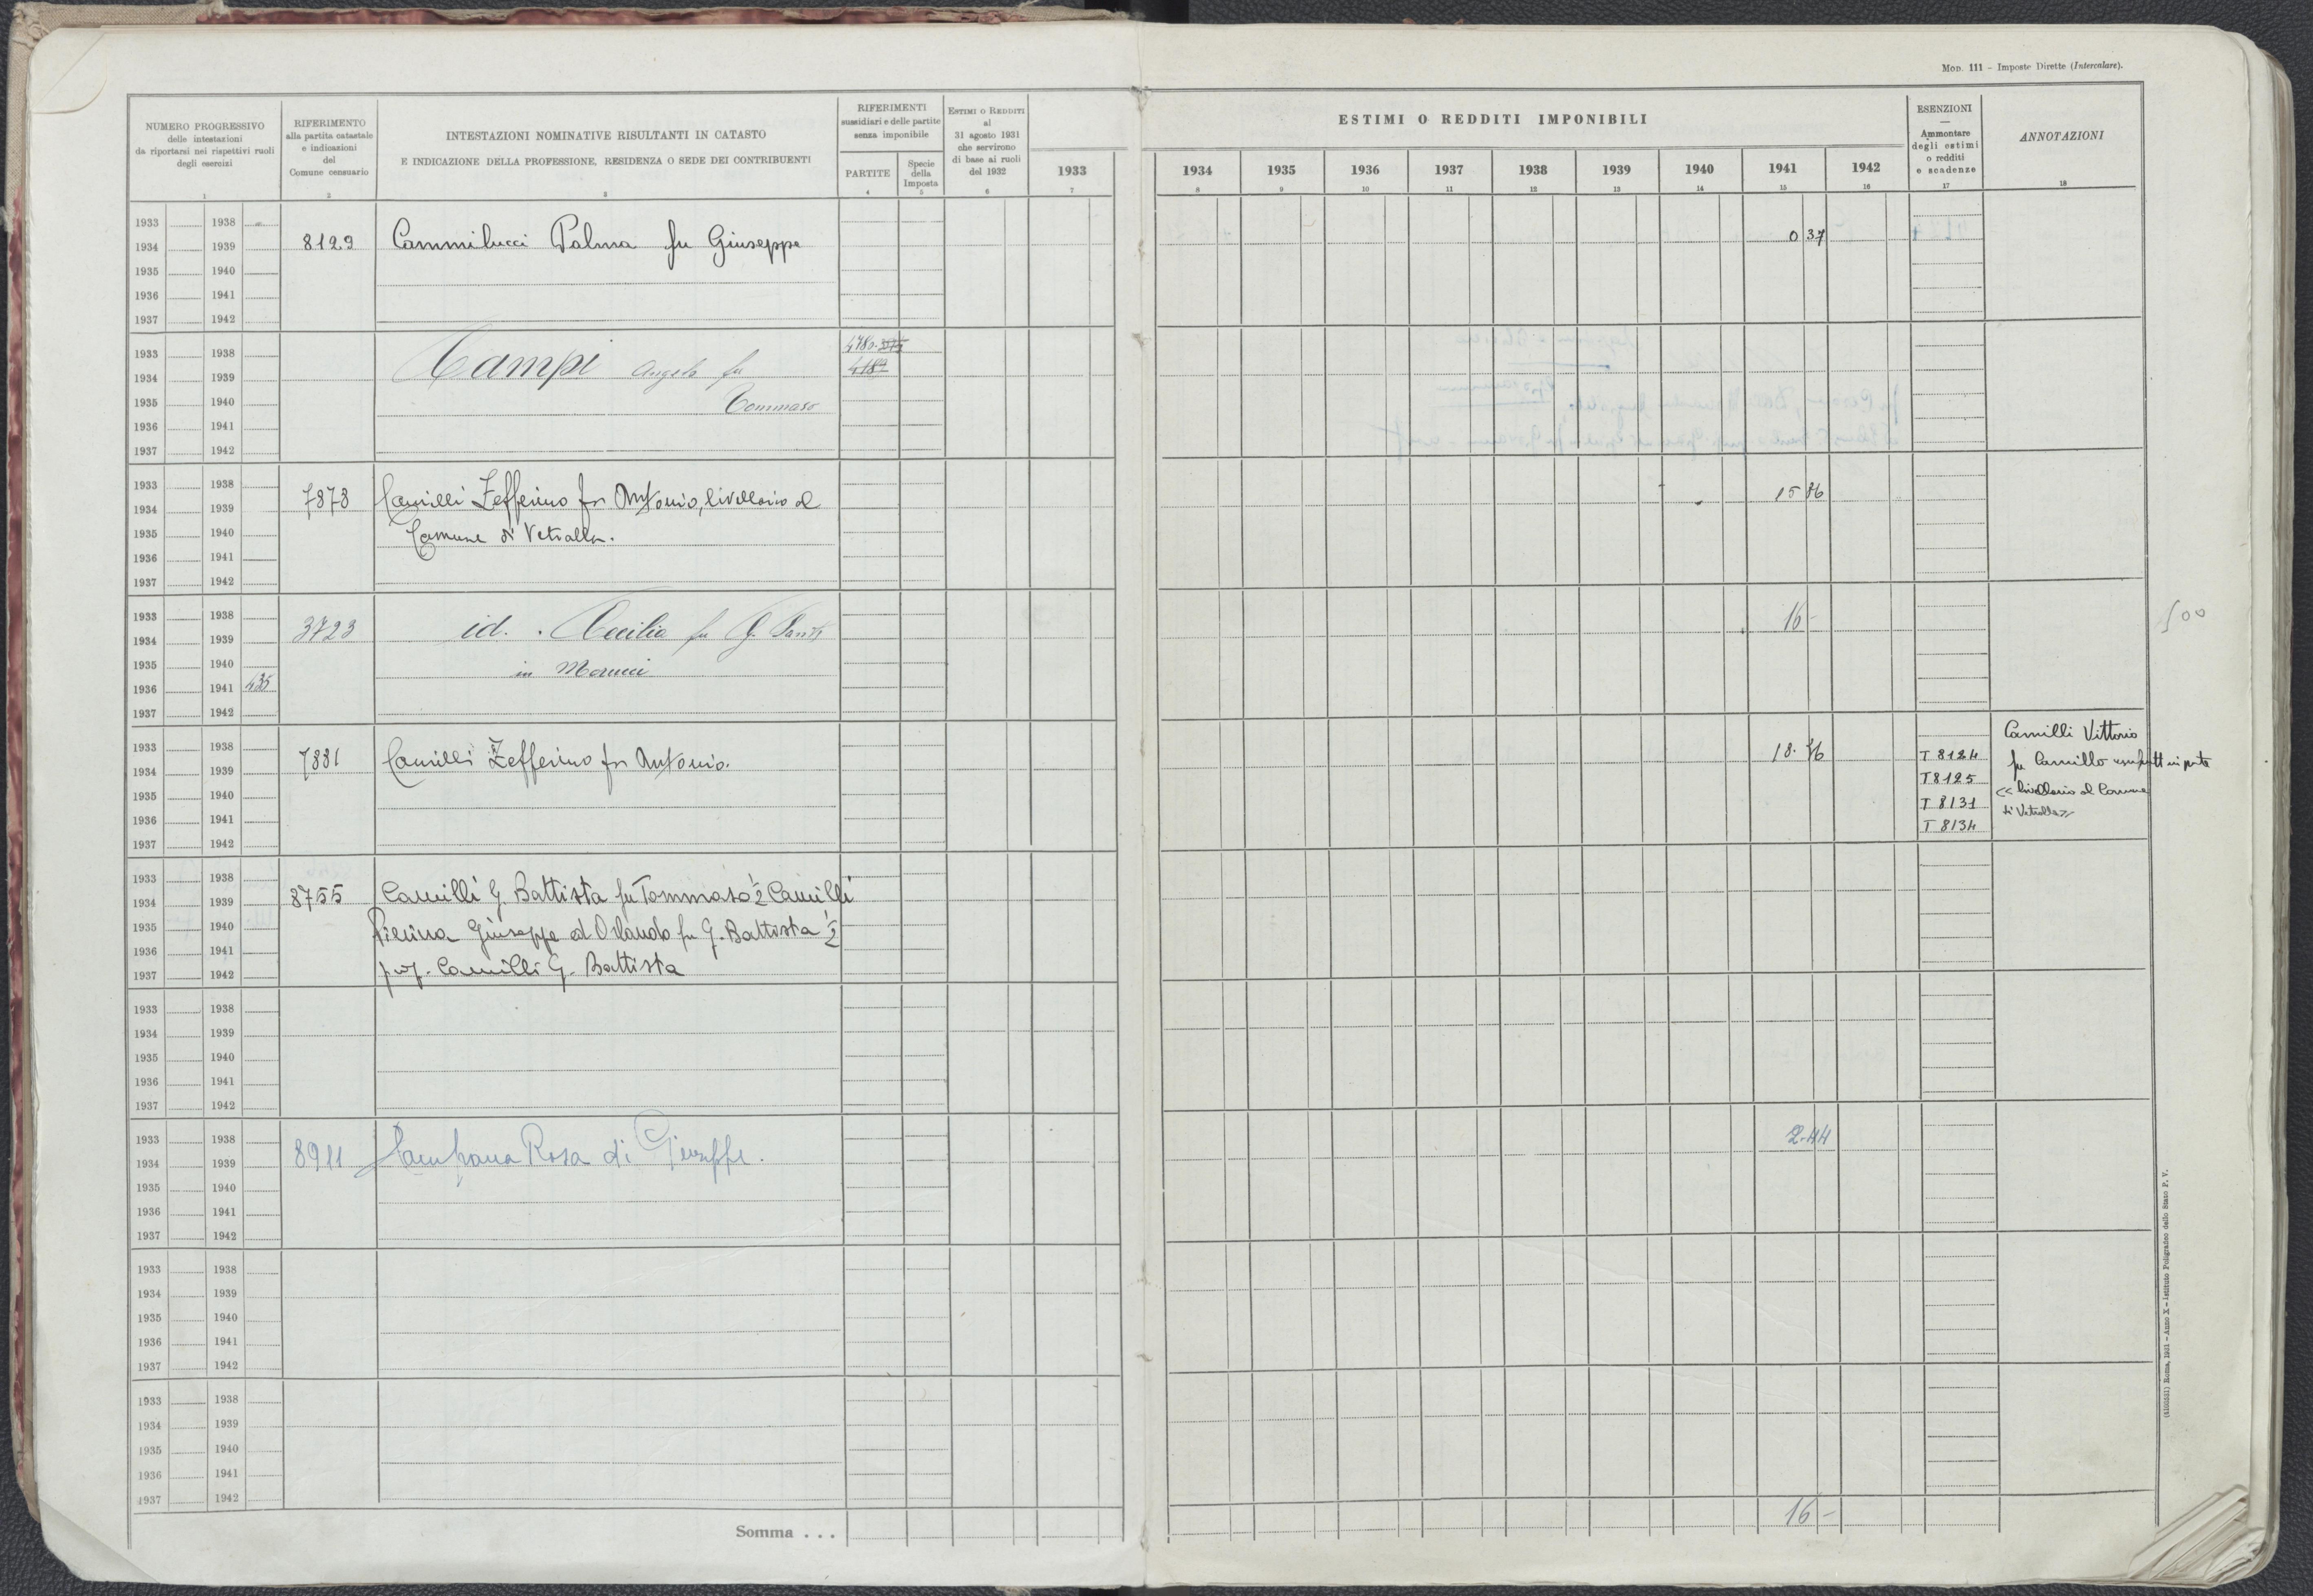 Mod. 111 - Imposte Dirette (Intercalare).
NUMERO PROGRESSIVO
delle intestazioni
da riportarsi nei rispettivi ruoli
degli esercizi
1
RIFERIMENTO
alla partita catastale
e indicazioni
del
Comune censuario
2
INTESTAZIONI NOMINATIVE RISULTANTI IN CATASTO
E INDICAZIONE DELLA PROFESSIONE, RESIDENZA O SEDE DEI CONTRIBUENTI
3
RIFERIMENTI
sussidiari e delle partite
senza imponibile
PARTITE
4
Specie
della
Imposta
5
ESTIMI O REDDITI
al
31 agosto 1931
che servirono
di base ai ruoli
del 1932
6
ESTIMI O REDDITI IMPONIBILI
1933 1934 1935 1936 1937 1938 1939 1940 1941 1942
7 8 9 10 11 12 13 14 15 16
ESENZIONI
—
Ammontare
degli estimi
o redditi
e scadenze
17
ANNOTAZIONI
18
1933 1938
1934 1939 8129 Cammilucci Palma fu Giuseppe 0 37
1935 1940
1936 1941
1937 1942
1933 1938 Campi Angelo fu
1934 1939
1935 1940 Tommaso
1936 1941
1937 1942
1933 1938
1934 1939 7878 Camilli Zefferino fu Antonio, livellario al 15 86
1935 1940 Comune di Vetralla.
1936 1941
1937 1942
1933 1938
1934 1939 3723 id. Cecilia fu G. Santi 16 -
1935 1940 in
1936 1941 435
1937 1942
500
1933 1938 Camilli Vittorio
1934 1939 7881 Camilli Zefferino fu Antonio. 18. 76 T 8124 fu Camillo
1935 1940 T 8125 << livellario al Comune
1936 1941 T 8131 di Vetralla >>
1937 1942 T 8134
1933 1938
1934 1939 8755 Camilli G. Battista fu Tommaso 1/2 Camilli
1935 1940 Pierina Giuseppe ed Orlando fu G. Battista 1/2
1936 1941
1937 1942 prop. Camilli G. Battista
1933 1938
1934 1939
1935 1940
1936 1941
1937 1942
1933 1938
1934 1939 8911 Campana Rosa di Giuseppe. 2.44
1935 1940
1936 1941
1937 1942
1933 1938
1934 1939
1935 1940
1936 1941
1937 1942
1933 1938
1934 1939
1935 1940
1936 1941
1937 1942
Somma . . . 16 -
(4100551) Roma, 1931 - Anno X - Istituto Poligrafico dello Stato P. V.